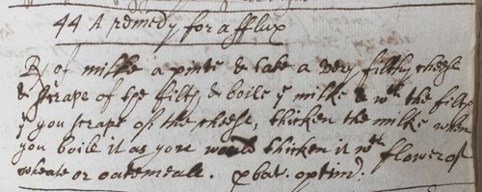 44 A remedy for a fflux
Rx of milke a pinte & take a very filthy cheese
& scrape of ye filth & boile ye milke & wth the filth
yt you scrape off the cheese, thicken the milke when
you boile it as you would thicken it wth flower of
wheate or oatemeale. pbat. optim: